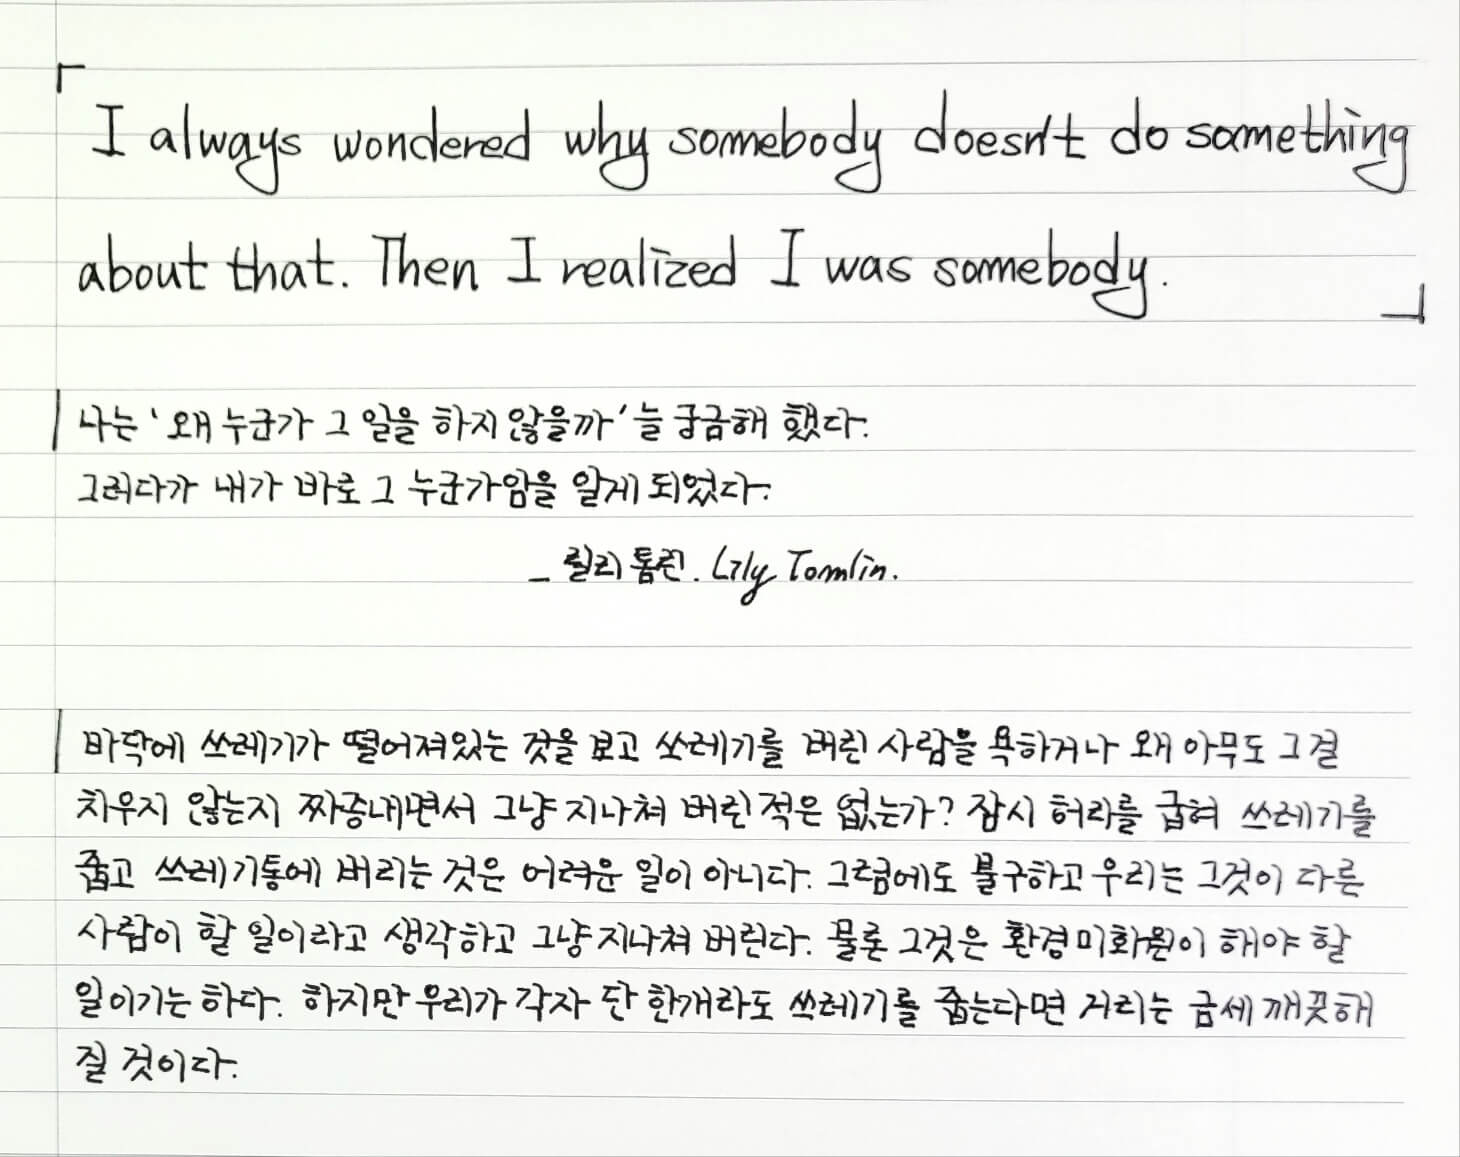 「I always wondered why somebody doesn't do something
about that. Then I realized I was somebody.」
나는 '왜 누군가 그 일을 하지 않을까' 늘 궁금해 했다.
그러다가 내가 바로 그 누군가임을 알게 되었다.
- 릴리 톰린. Lily Tomlin.
바닥에 쓰레기가 떨어져있는 것을 보고 쓰레기를 버린 사람을 욕하거나 왜 아무도 그걸
치우지 않는지 짜증내면서 그냥 지나쳐 버린 적은 없는가? 잠시 허리를 굽혀 쓰레기를
줍고 쓰레기통에 버리는 것은 어려운 일이 아니다. 그럼에도 불구하고 우리는 그것이 다른
사람이 할 일이라고 생각하고 그냥 지나쳐 버린다. 물론 그것은 환경미화원이 해야 할
일이기는 하다. 하지만 우리가 각자 단 한개라도 쓰레기를 줍는다면 거리는 금세 깨끗해
질 것이다.